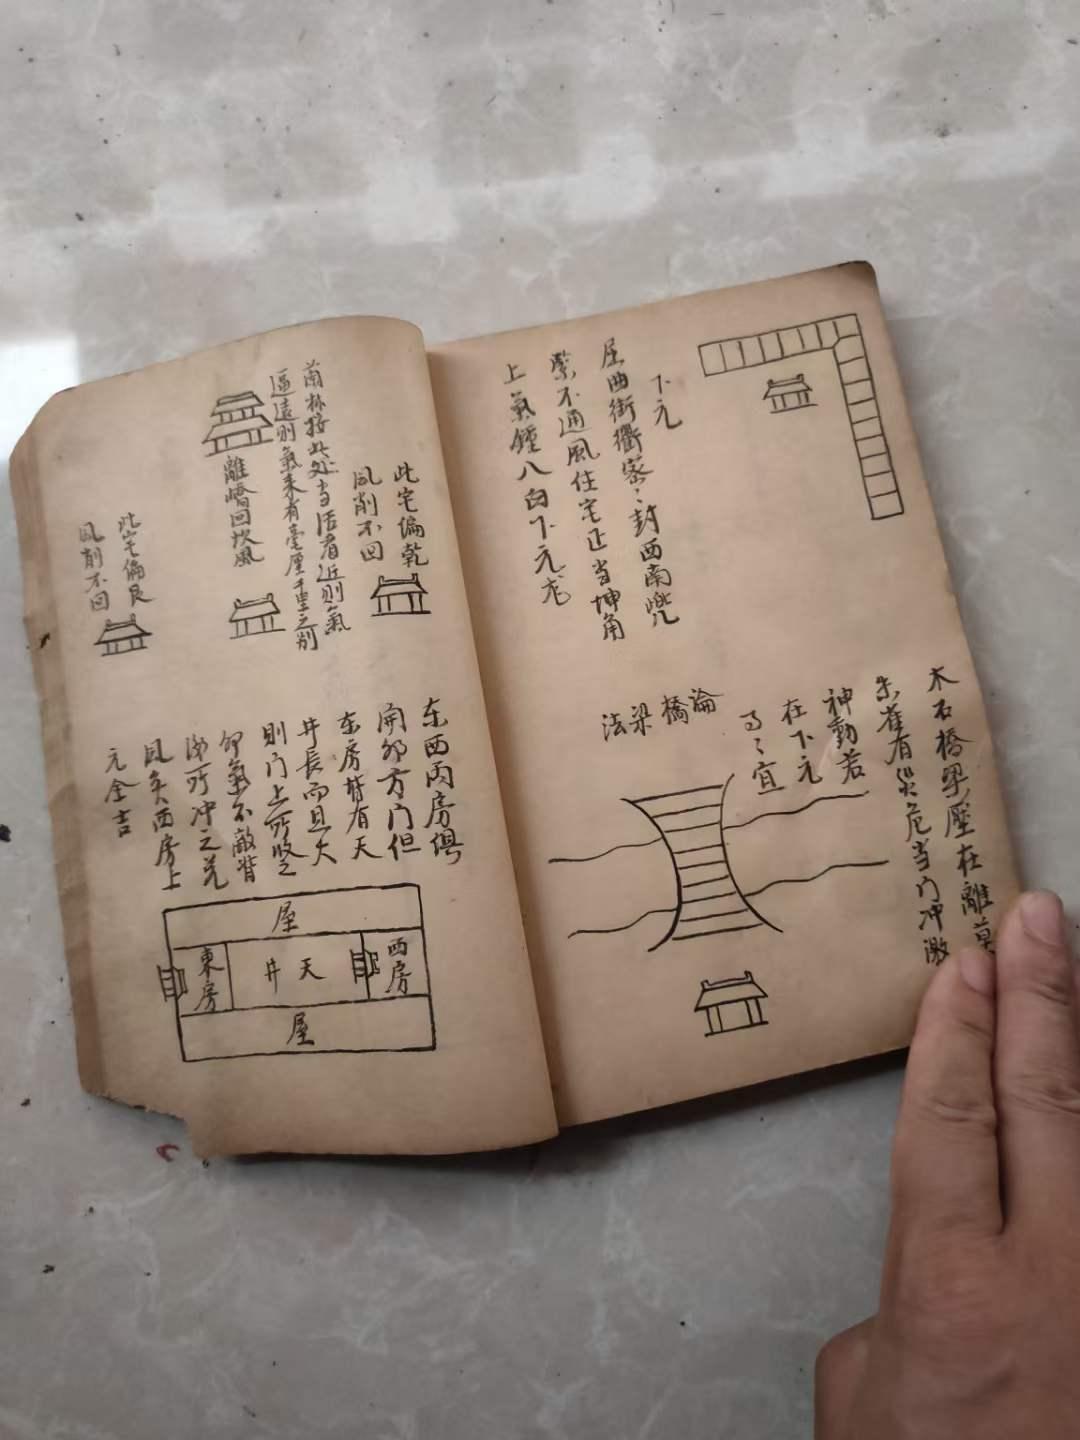 下元
屋曲街衢密〻封西南兜
緊不通風住宅正当坤角
上氣鍾八白下元龙
論橋梁法
木石橋梁壓在離莫
朱雀有災危当门冲激
神動若
在下元
〻宜
此宅偏乾
風削不回
蘭林接此处当活看近则氣
逼遠则氣来有毫厘千里之别
離嶠回坎風
此宅偏艮
風削不回
东西两房俱
開卯方门但
东房背有天
井長而且大
則门上所收之
卯氣不敵背
後所冲之兑
風矣西房上
元全吉
屋
東房
天井
西房
屋